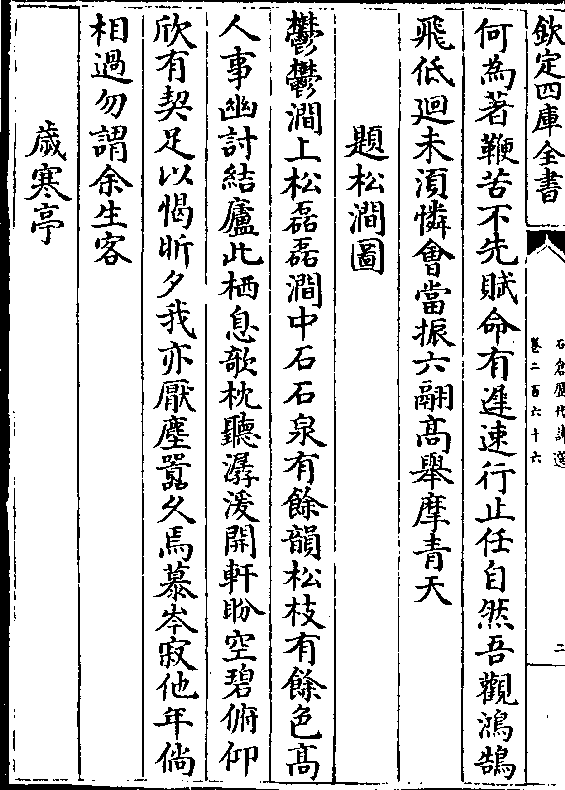 欽定四庫全書
石倉歷代詩選
卷二百六十六
二
何為著鞭苦不先賦命有遲速行止任自然吾觀鴻鵠
飛低迴未湏憐會當振六翮髙舉摩青天
題松澗圖
鬱鬱澗上松磊磊澗中石石泉有餘韻松枝有餘色髙
人事幽討結廬此栖息欹枕聽潺湲開軒盼空碧俯仰
欣有契足以愒昕夕我亦厭塵囂久焉慕岑寂他年倘
相過勿謂余生客
歳寒亭